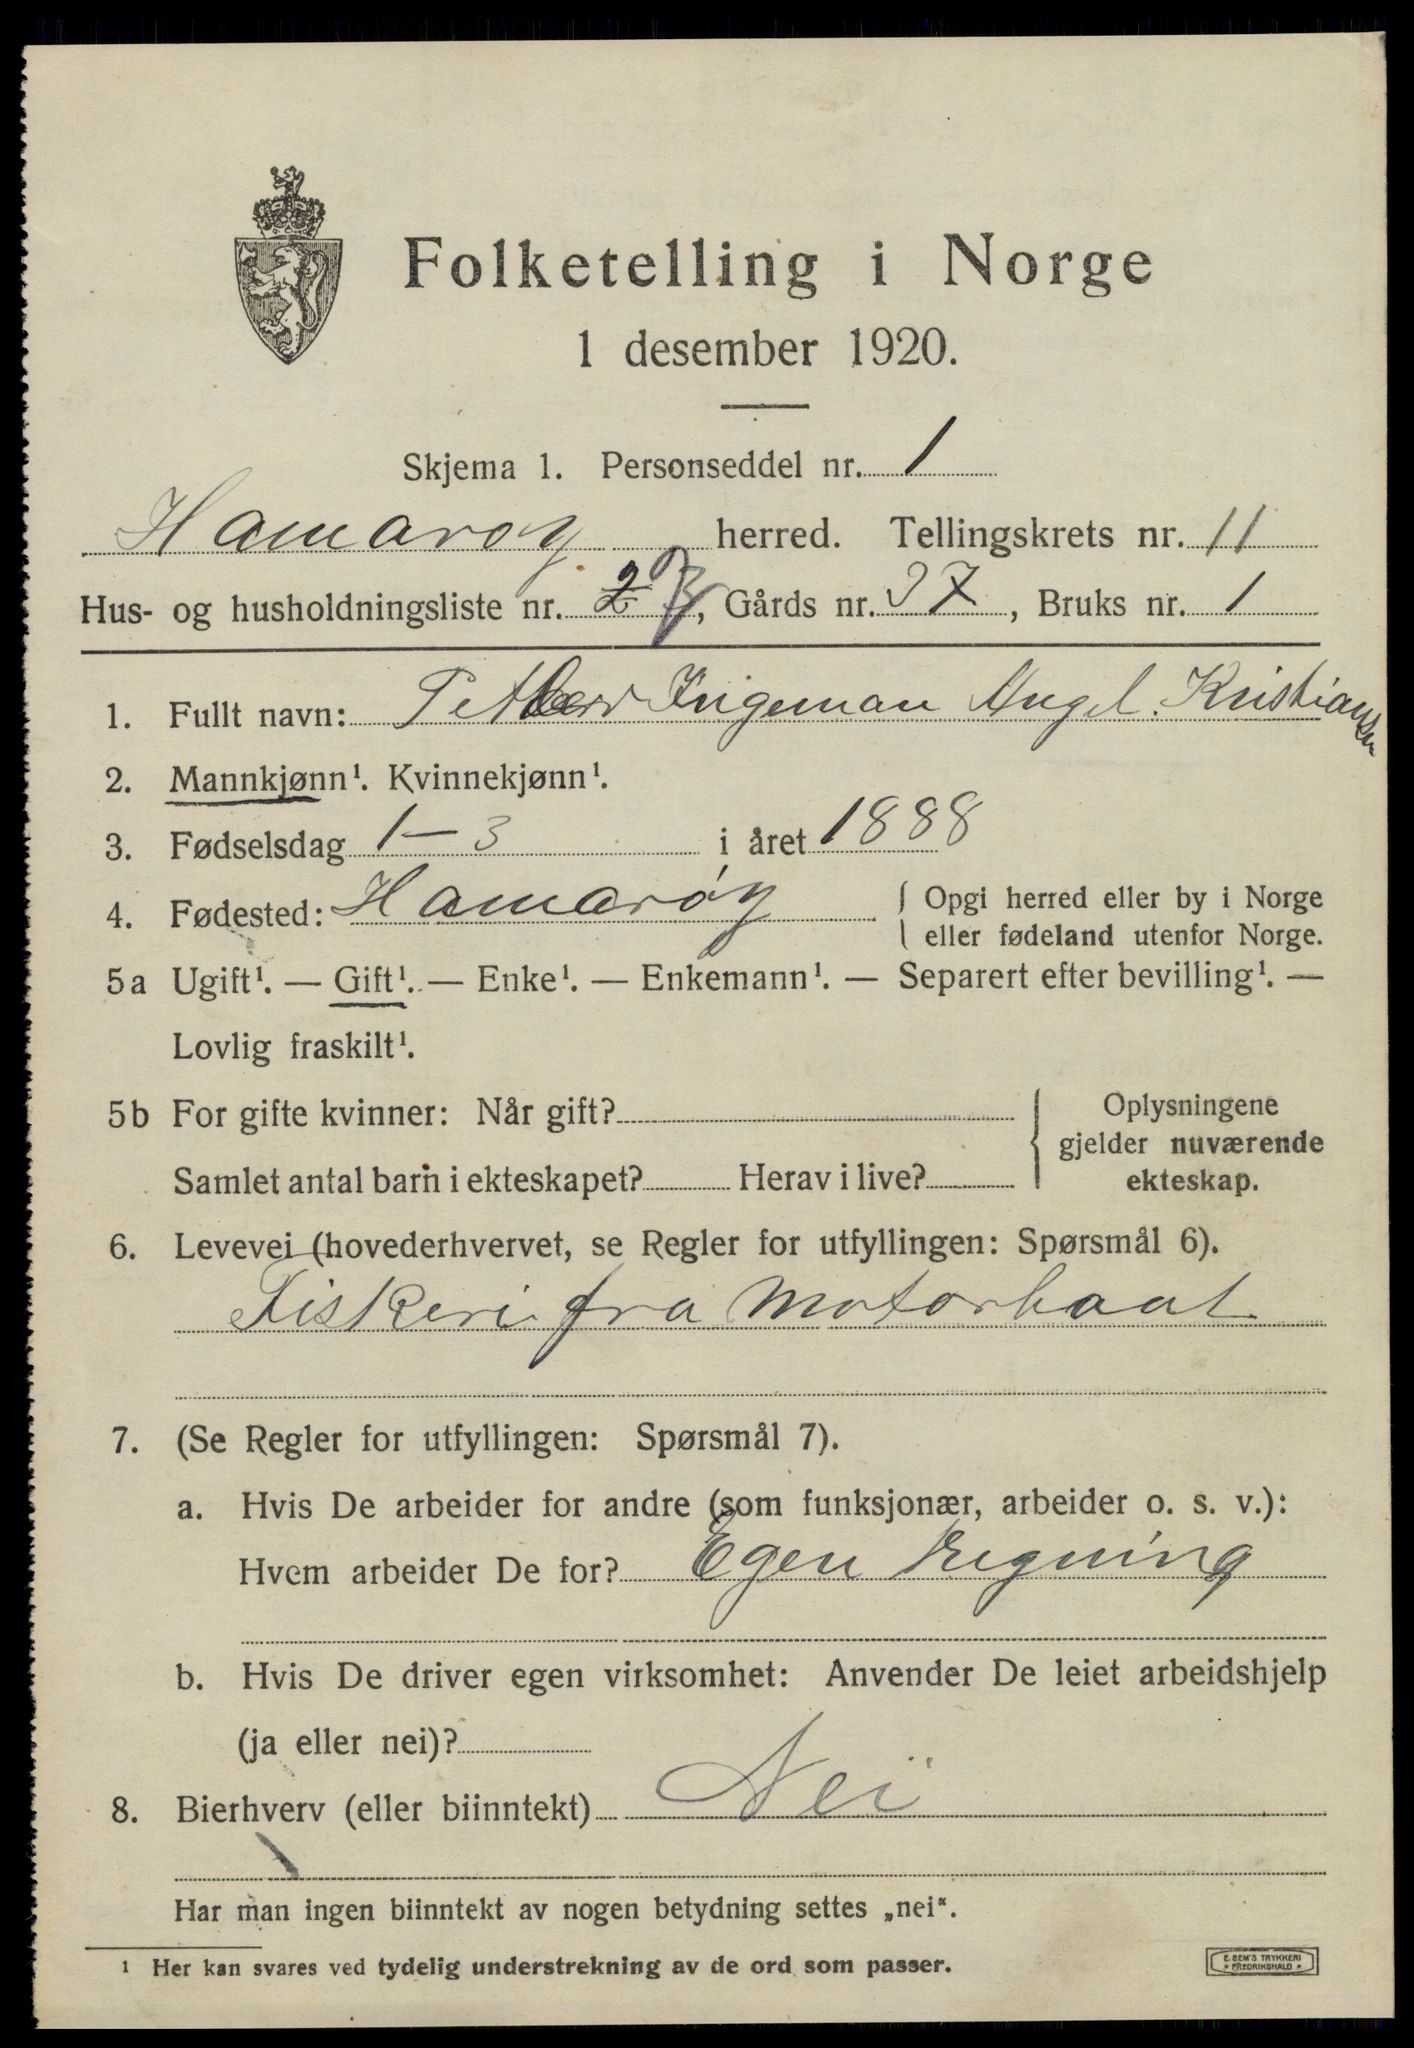 Folketelling i Norge
1 desember 1920.
Skjema 1. Personseddel nr. 1
Hamarøy herred. Tellingskrets nr. 11
Hus- og husholdningsliste nr. 27, Gårds nr. 37, Bruks nr. 1
1. Fullt navn: Petter Ingeman Angel. Kristiansen
2. Mannkjønn¹. Kvinnekjønn¹.
3. Fødselsdag 1-3 i året 1888
4. Fødested: Hamarøy { Opgi herred eller by i Norge
eller fødeland utenfor Norge.
5a Ugift¹. — Gift¹. — Enke¹. — Enkemann¹. — Separert efter bevilling¹. —
Lovlig fraskilt¹.
5b For gifte kvinner: Når gift? { Oplysningene
gjelder nuværende
Samlet antal barn i ekteskapet? Herav i live? ekteskap.
6. Levevei (hovederhvervet, se Regler for utfyllingen: Spørsmål 6).
Fiskeri fra Motorbaat
7. (Se Regler for utfyllingen: Spørsmål 7).
a. Hvis De arbeider for andre (som funksjonær, arbeider o. s. v.):
Hvem arbeider De for? Egen Regning
b. Hvis De driver egen virksomhet: Anvender De leiet arbeidshjelp
(ja eller nei)?
8. Bierhverv (eller biinntekt) Nei
Har man ingen biinntekt av nogen betydning settes „nei".
¹ Her kan svares ved tydelig understrekning av de ord som passer.
E. SEM'S TRYKKERI
FREDRIKSHALD